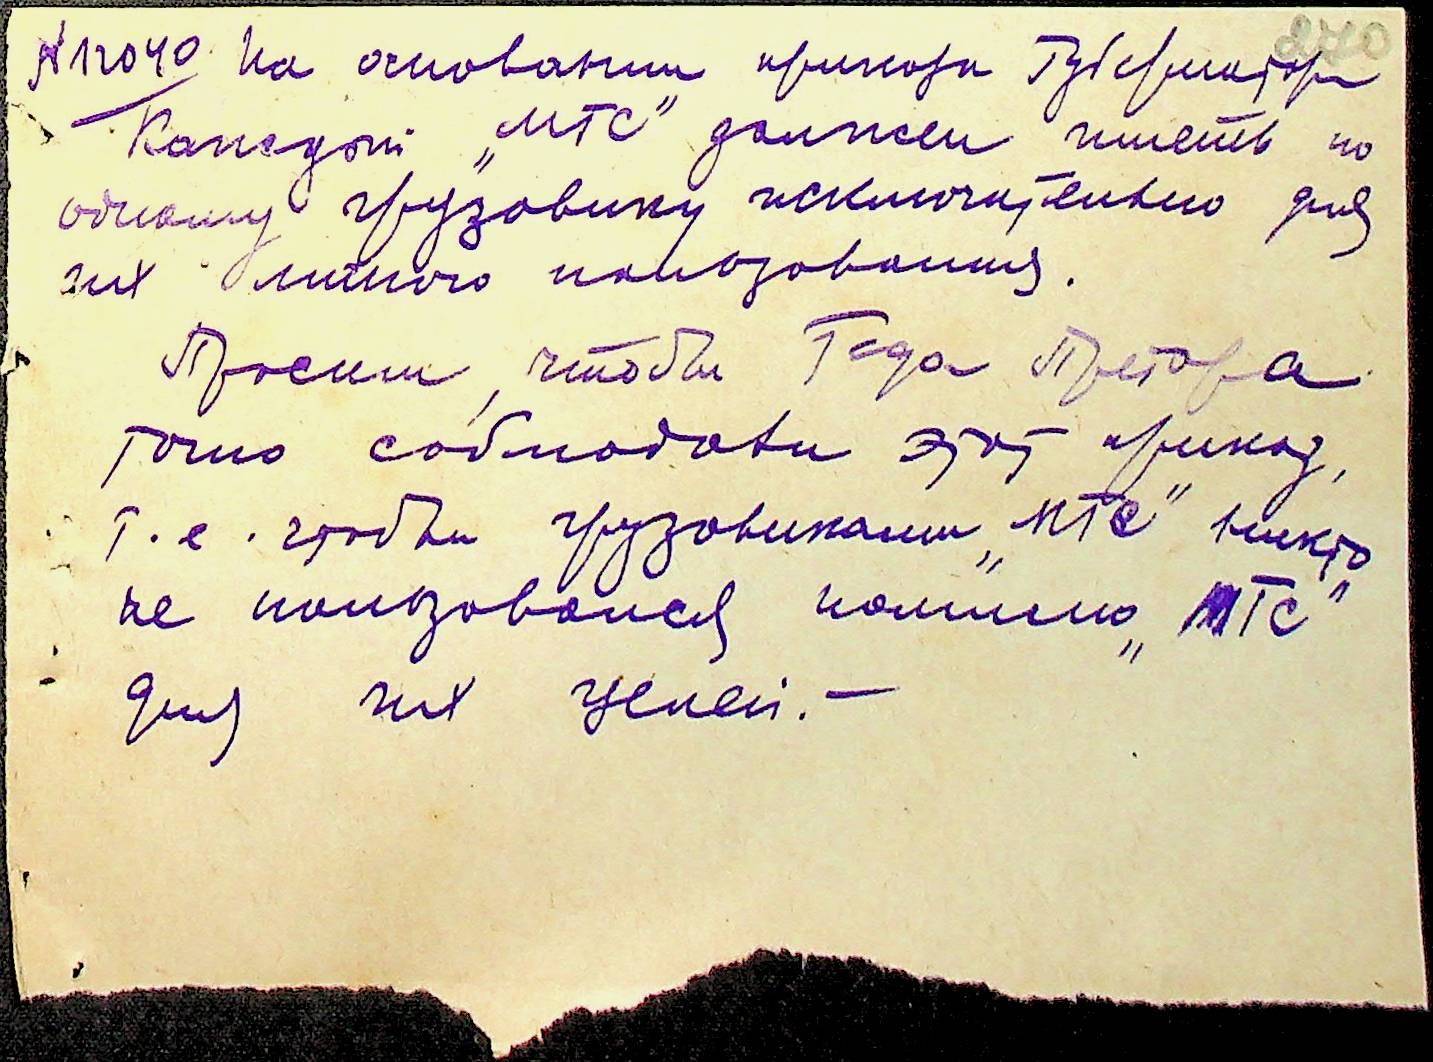 270
№12040 На основании приказа Губернатора
Каждый „МТС" должен иметь по
одному грузовику исключительно для
их личного пользования.
Просим, чтобы Г-да Претора
точно соблюдали этот приказ,
т.е. чтобы грузовиками „МТС" никто
не пользовался помимо „МТС"
для их целей.—